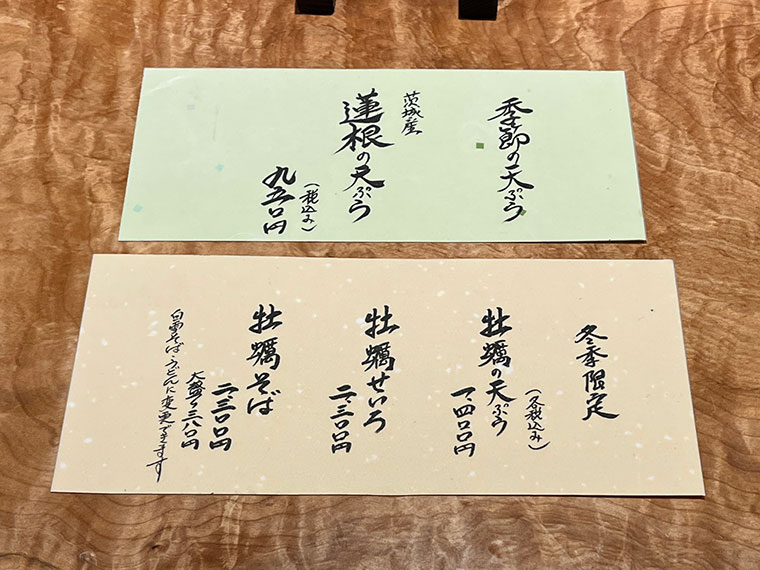 季節の天ぷら
茨城産
蓮根の天ぷら
(税込み)
九五〇円
冬季限定
(各税込み)
牡蠣の天ぷら
一、四〇〇円
牡蠣せいろ
二、三〇〇円
牡蠣そば
二、三〇〇円
大盛り三八〇円
白雪そば・うどんに変更できます